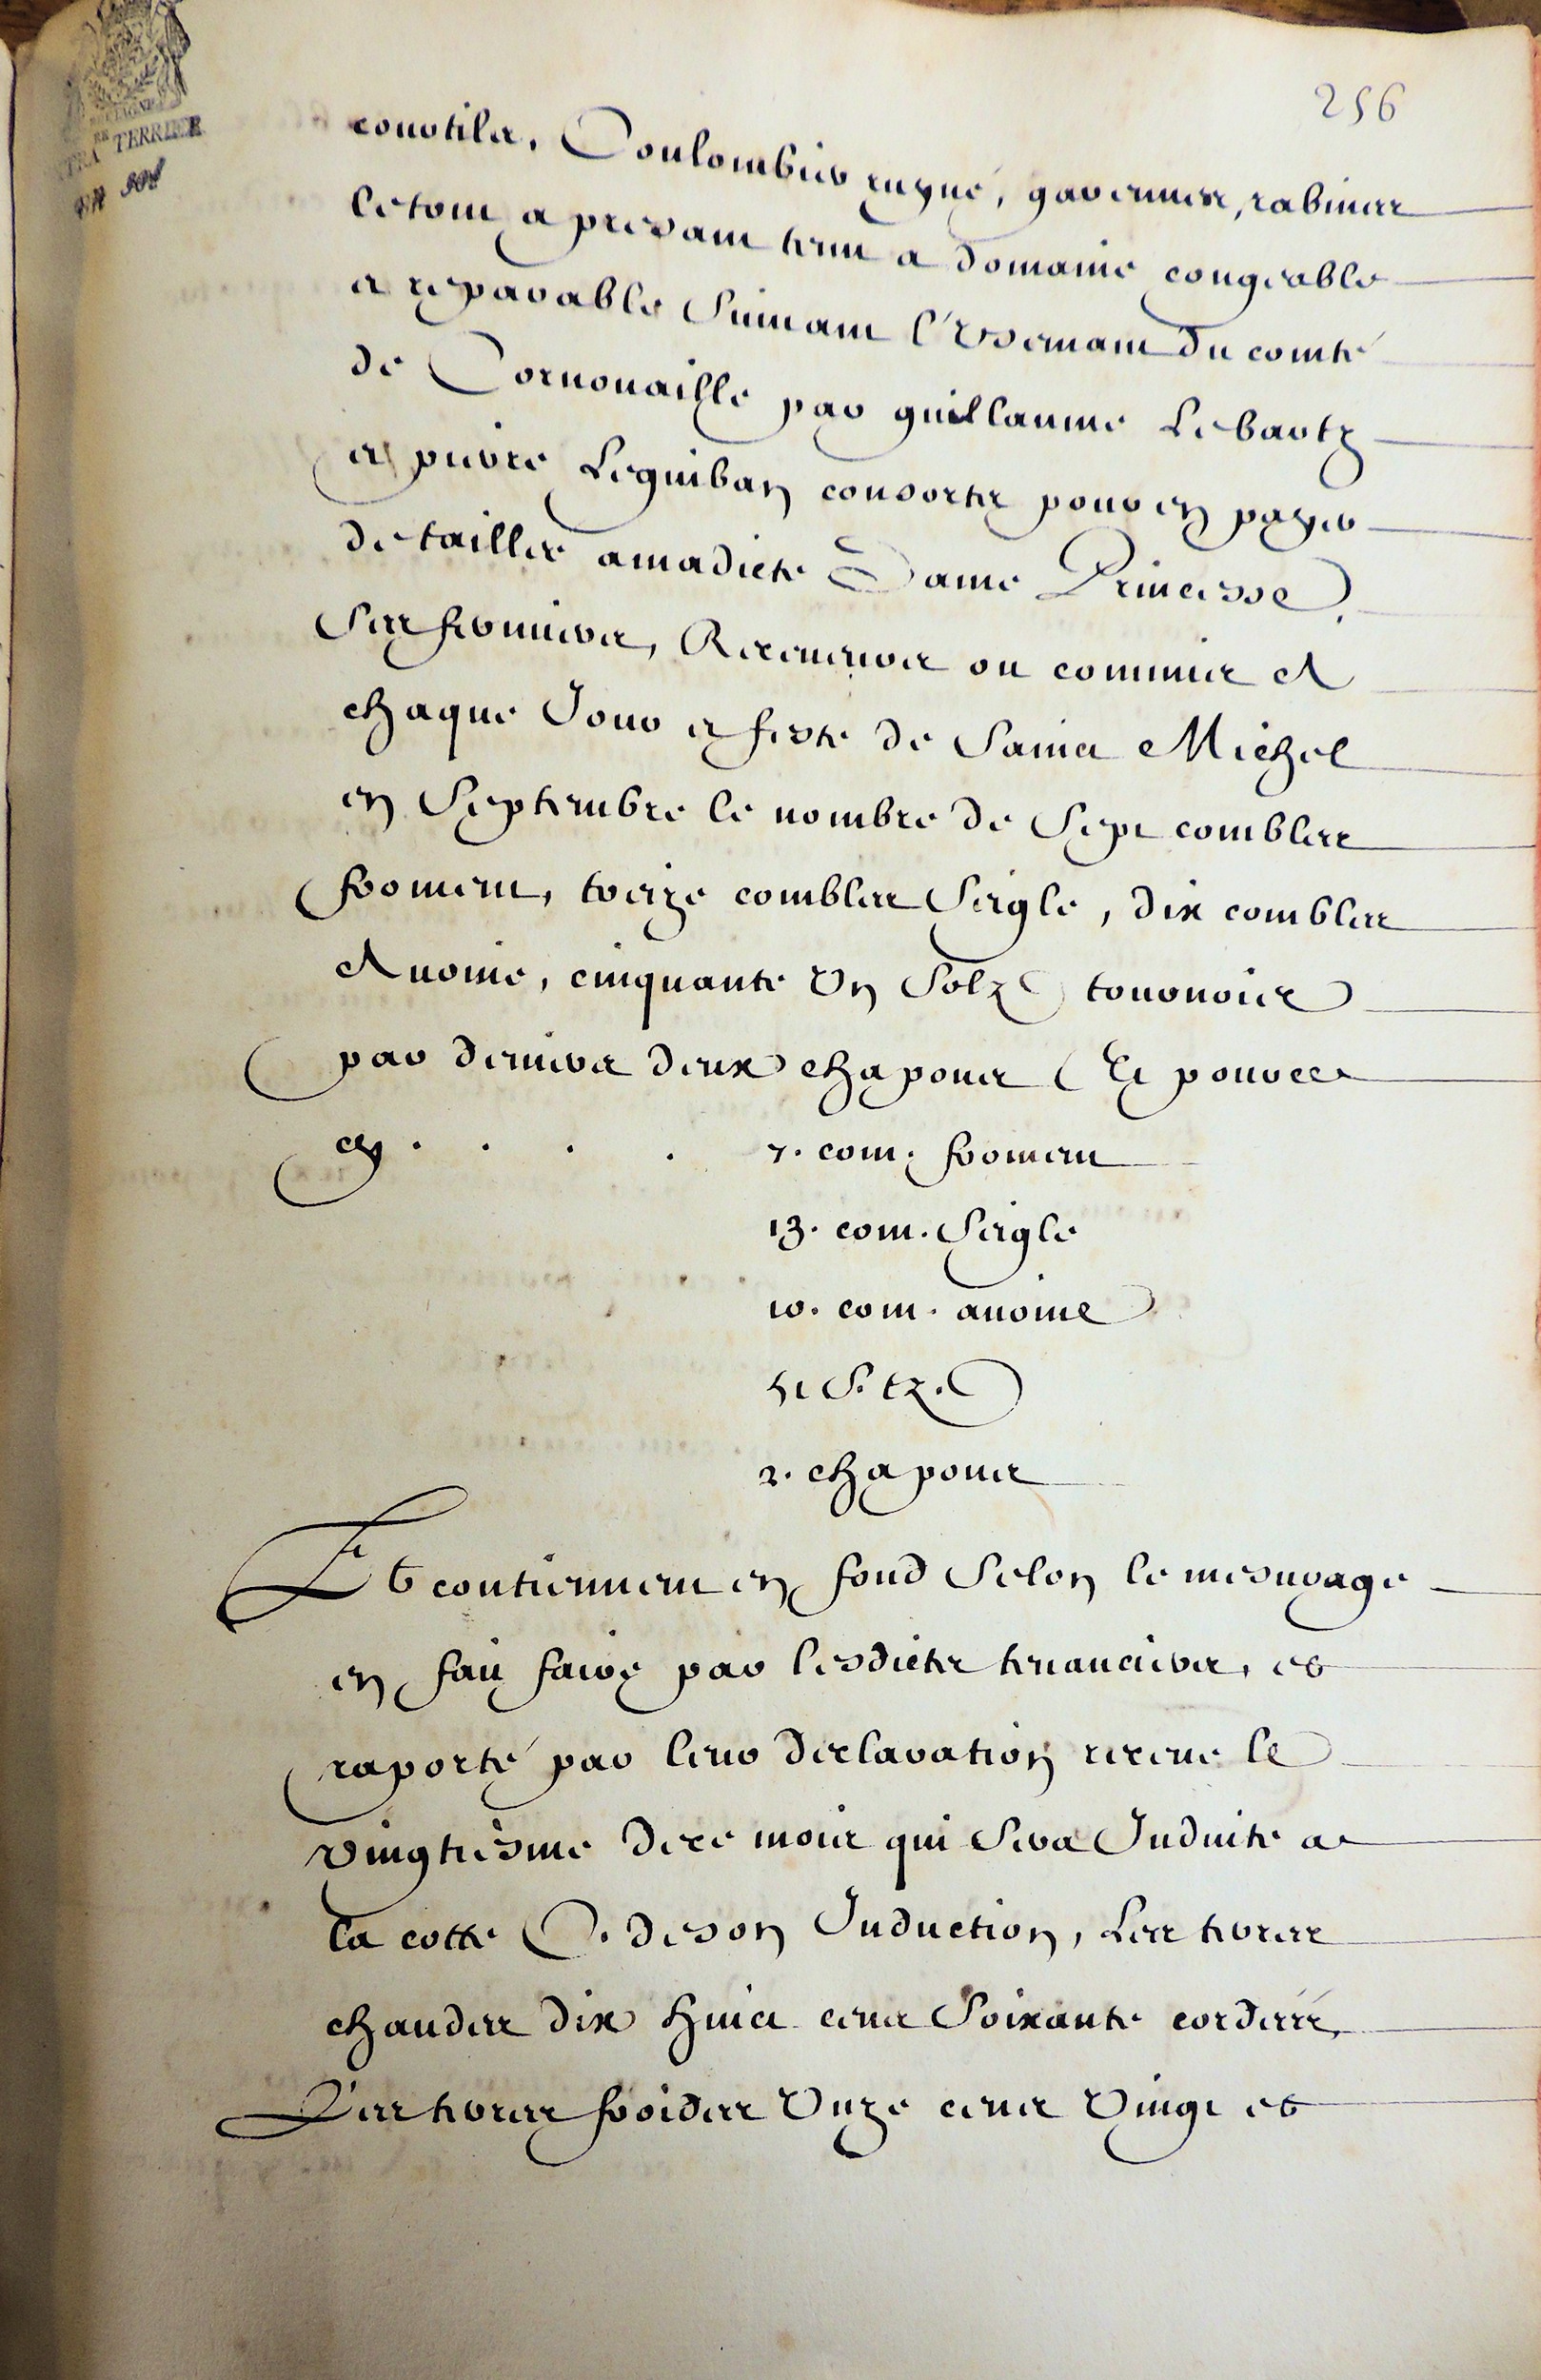 256
BRETAGNE
TRA RE TERRIER
courtils, Coulombier ruyné, garennes, rabines
le tout a presant tenu a domaine congeable
et reparable suivant l'Usemant du comté
de Cornouaille par guillaume Lebartz
et pierre Leguiban consortz pour en payer
de tailles a madicte Dame Princesse
ses fermiers, Receveurs ou commis A
chaque Jour et feste de Sainct Michel
en Septembre le nombre de Sept combles
froment, treize combles seigle, dix combles
Avoine, cinquante Un Solz tournois
par deniers deux chapons Et pour ce
cy . . . . 7. com. froment
13. com. Seigle
10. com. avoine
51 s. tz.
2. chapons
Et contiennent en fond selon le mesurage
en fait faire par lesdictes tenanciers, et
raporté par leur declaration receue le
vingtiesme de ce mois qui sera Induite a
la cotte C. de son Induction, Les terres
chaudes dix huict cents soixante cordées,
Les terres froides Unze cents Vingt et